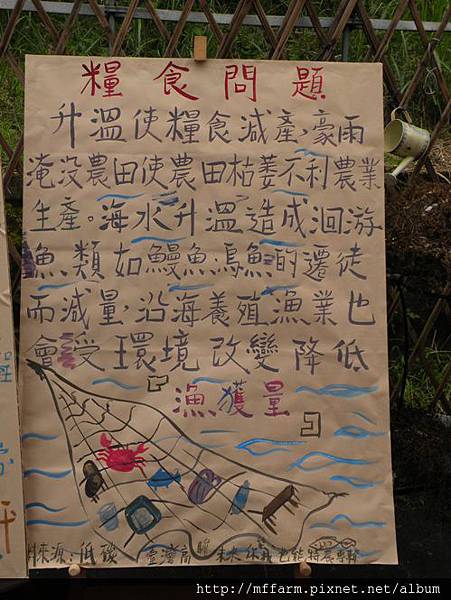 糧食問題
升溫使糧食減產,豪雨
淹沒農田使農田枯萎不利農業
生產。海水升溫造成洄游
魚類如鰻魚烏魚的遷徒
而減量,沿海養殖漁業也
會受環境改變降低
漁獲量
http://mffarm.pixnet.net/album